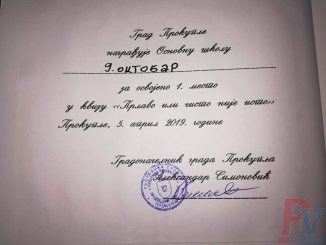 Град Прокупље
награђује Основну школу
9. ОКТОБАР
за освојено 1. место
у квизу "Прљаво или чисто није исто"
Прокупље, 5. април 2019. године
Градоначелник града Прокупља
Александар Симоновић